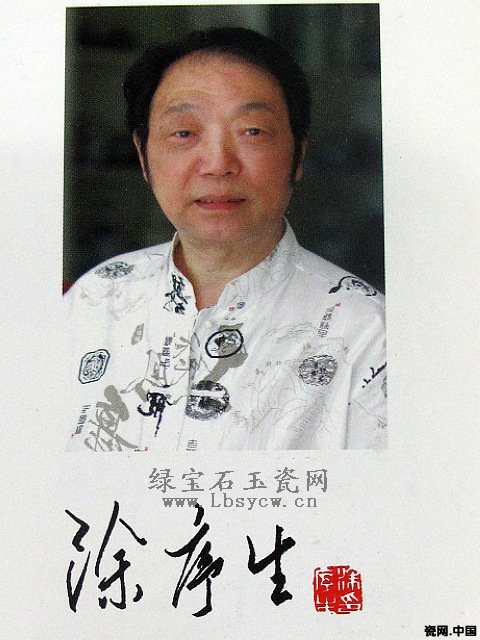 绿宝石玉瓷网
www.Lbsycw.cn
涂序生
瓷网.中国